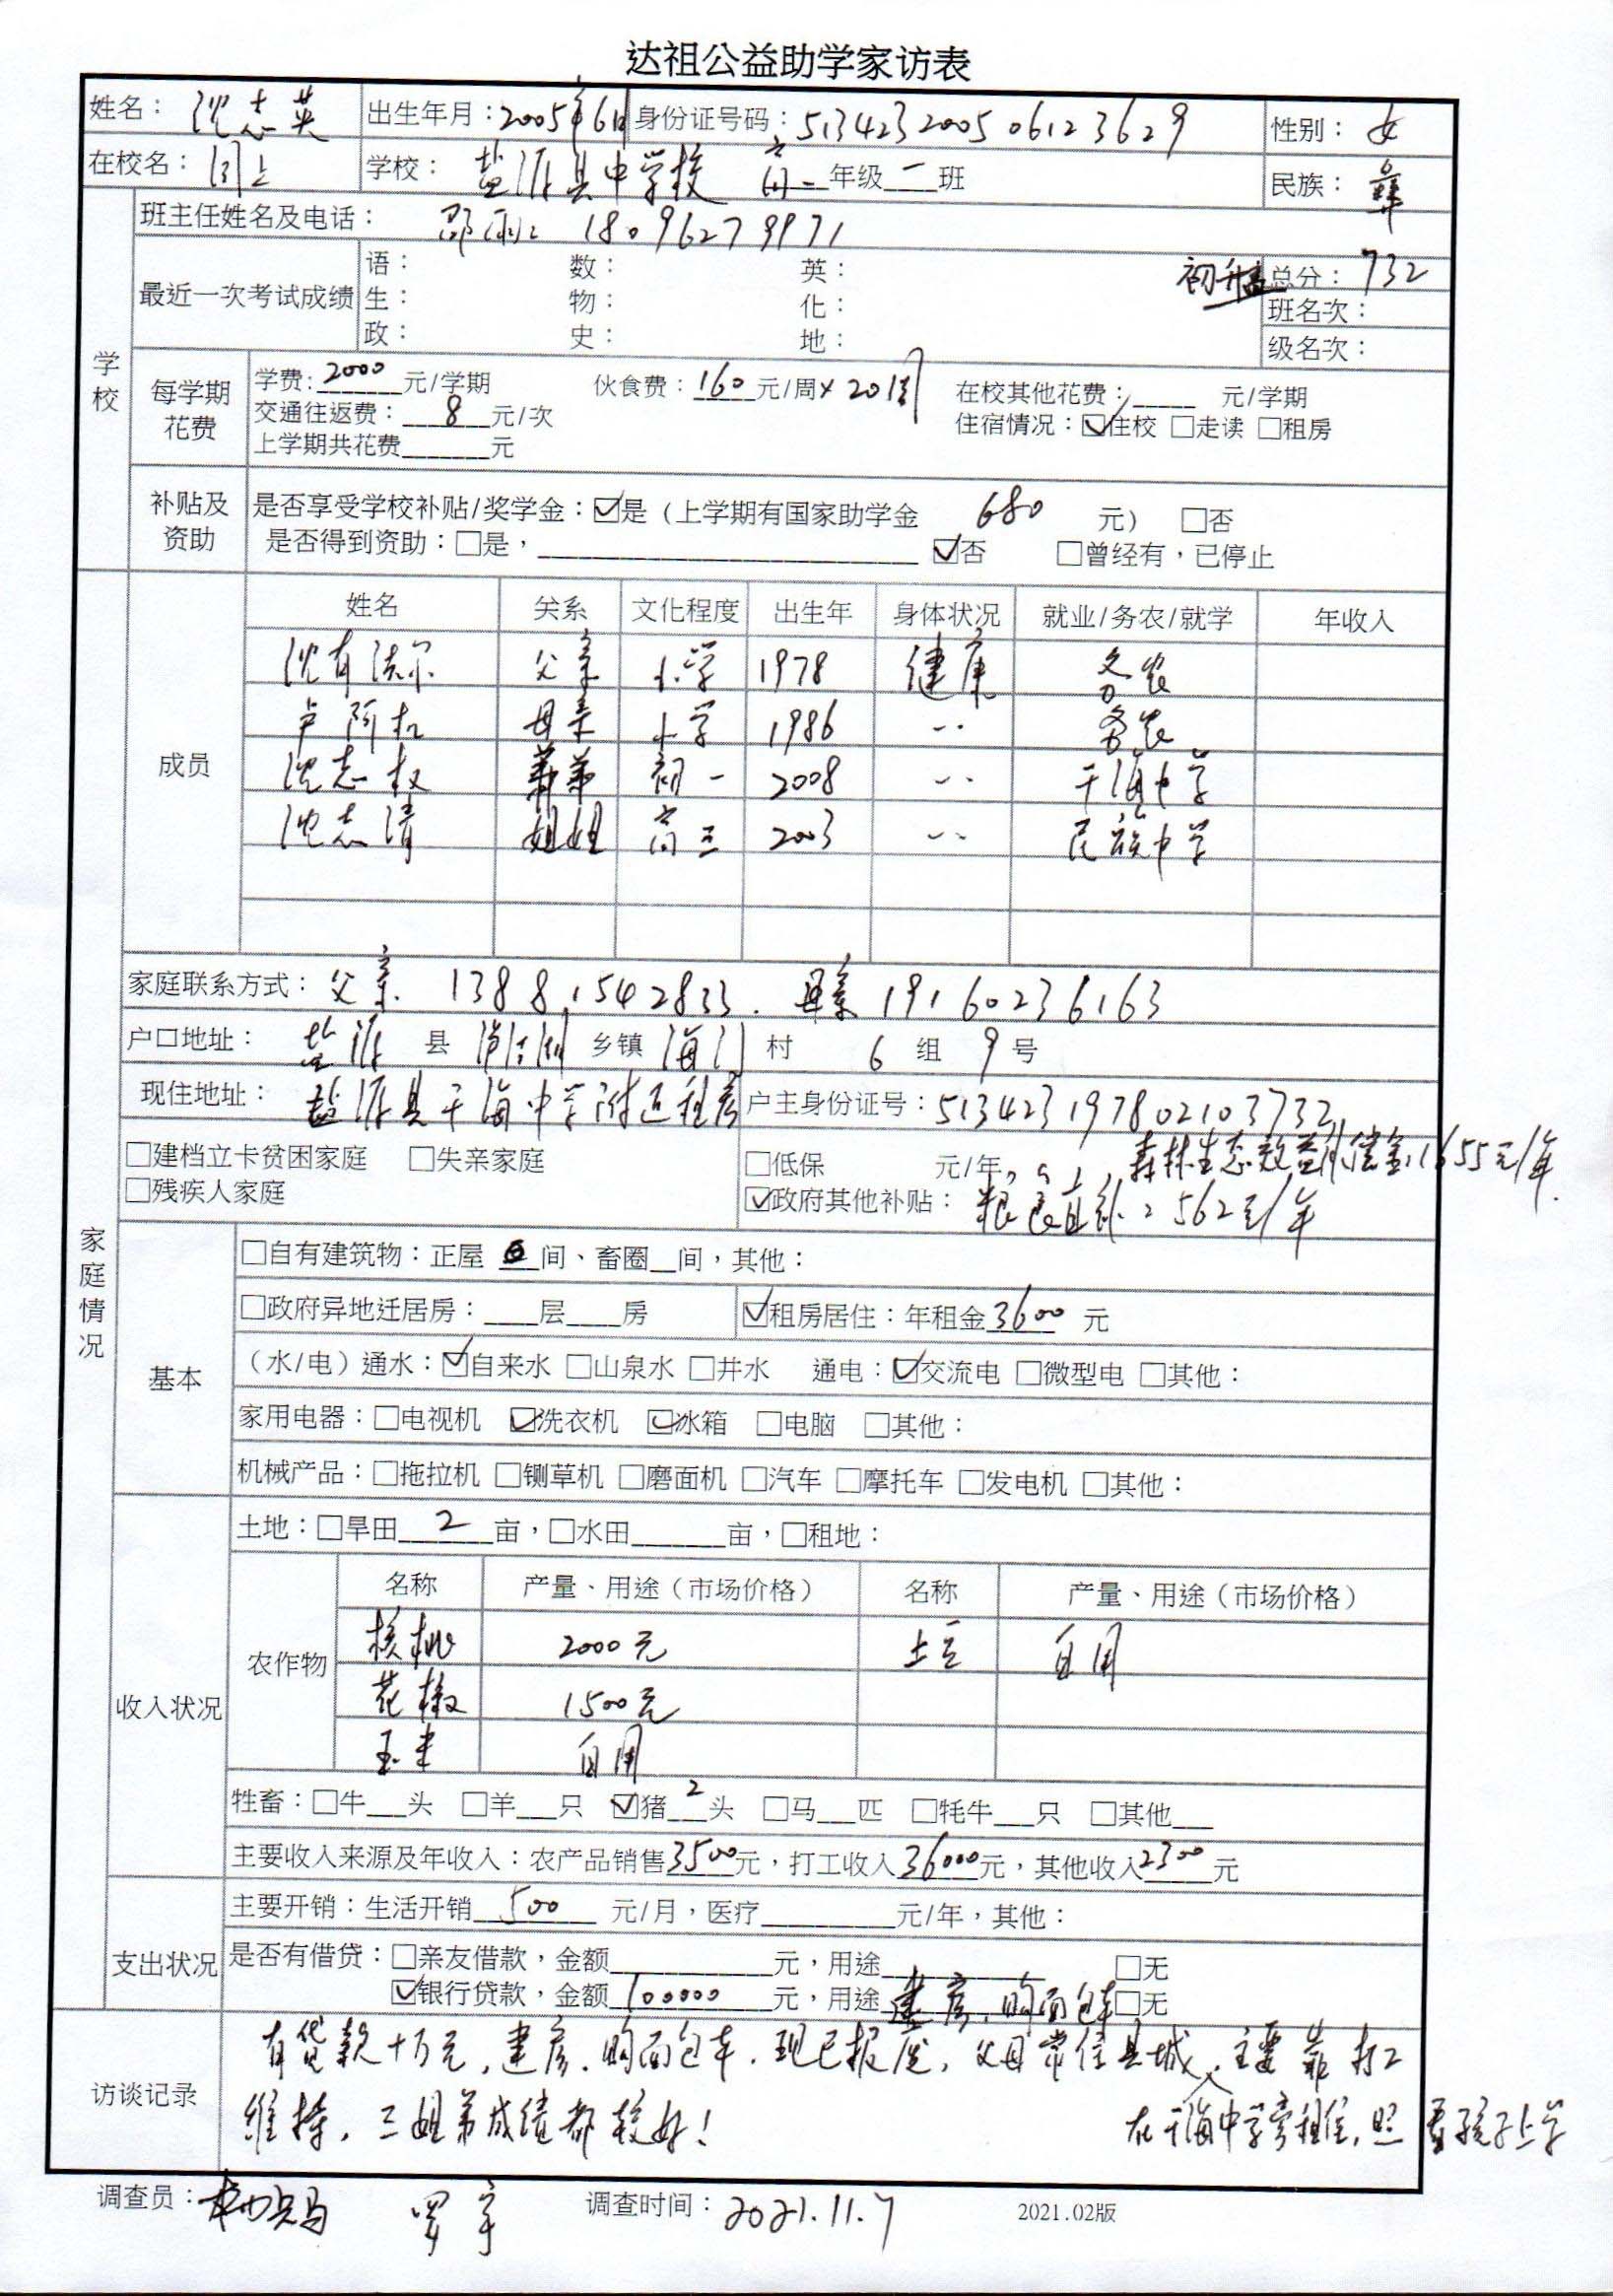 达祖公益助学家访表
姓名：沈志英 出生年月：2005年6月 身份证号码：513423200506123629 性别：女
在校名：同上 学校：盐源县中学校 高一年级二班 民族：彝
学校
班主任姓名及电话： 18096279971
最近一次考试成绩 语： 数： 英： 初升高 总分：732
生： 物： 化： 班名次：
政： 史： 地： 级名次：
每学期花费 学费：2000元/学期 伙食费：160元/周×20周 在校其他花费：____元/学期
交通往返费：8元/次 住宿情况：☑住校 □走读 □租房
上学期共花费____元
补贴及资助 是否享受学校补贴/奖学金：☑是（上学期有国家助学金 680 元） □否
是否得到资助：□是，____ ☑否 □曾经有，已停止
家庭情况
成员 姓名 关系 文化程度 出生年 身体状况 就业/务农/就学 年收入
沈有 父亲 小学 1978 健康 务农
卢阿 母亲 小学 1986 〃 务农
沈志权 弟弟 初一 2008 〃 干海中学
沈志清 姐姐 高三 2003 〃 民族中学
家庭联系方式：父亲 13881542833. 母亲 19160236163
户口地址：盐源 县 乡镇 海门 村 6 组 9 号
现住地址：盐源县干海中学附近租房 户主身份证号：513423197802103732
□建档立卡贫困家庭 □失亲家庭 □低保 元/年。 森林生态效益补偿金1655元/年.
□残疾人家庭 ☑政府其他补贴：粮食直补：562元/年
基本 □自有建筑物：正屋__间、畜圈__间，其他：
□政府异地迁居房：____层____房 ☑租房居住：年租金3600元
（水/电）通水：☑自来水 □山泉水 □井水 通电：☑交流电 □微型电 □其他：
家用电器：□电视机 ☑洗衣机 ☑冰箱 □电脑 □其他：
机械产品：□拖拉机 □铡草机 □磨面机 □汽车 □摩托车 □发电机 □其他：
收入状况 土地：□旱田 2 亩，□水田____亩，□租地：
农作物 名称 产量、用途（市场价格） 名称 产量、用途（市场价格）
核桃 2000元 土豆 自用
花椒 1500元
玉米 自用
牲畜：□牛___头 □羊___只 ☑猪 2 头 □马___匹 □牦牛___只 □其他___
主要收入来源及年收入：农产品销售3500元，打工收入36000元，其他收入2300元
支出状况 主要开销：生活开销 500 元/月，医疗____元/年，其他：
是否有借贷：□亲友借款，金额____元，用途____ □无
☑银行贷款，金额 100000 元，用途 建房，购面包车 □无
访谈记录 有贷款十万元，建房，购面包车，现已报废，父母常住县城，主要靠打工
维持，三姐弟成绩都较好！ 在干海中学旁租住，照看孩子上学
调查员： 罗 调查时间：2021.11.7 2021.02版